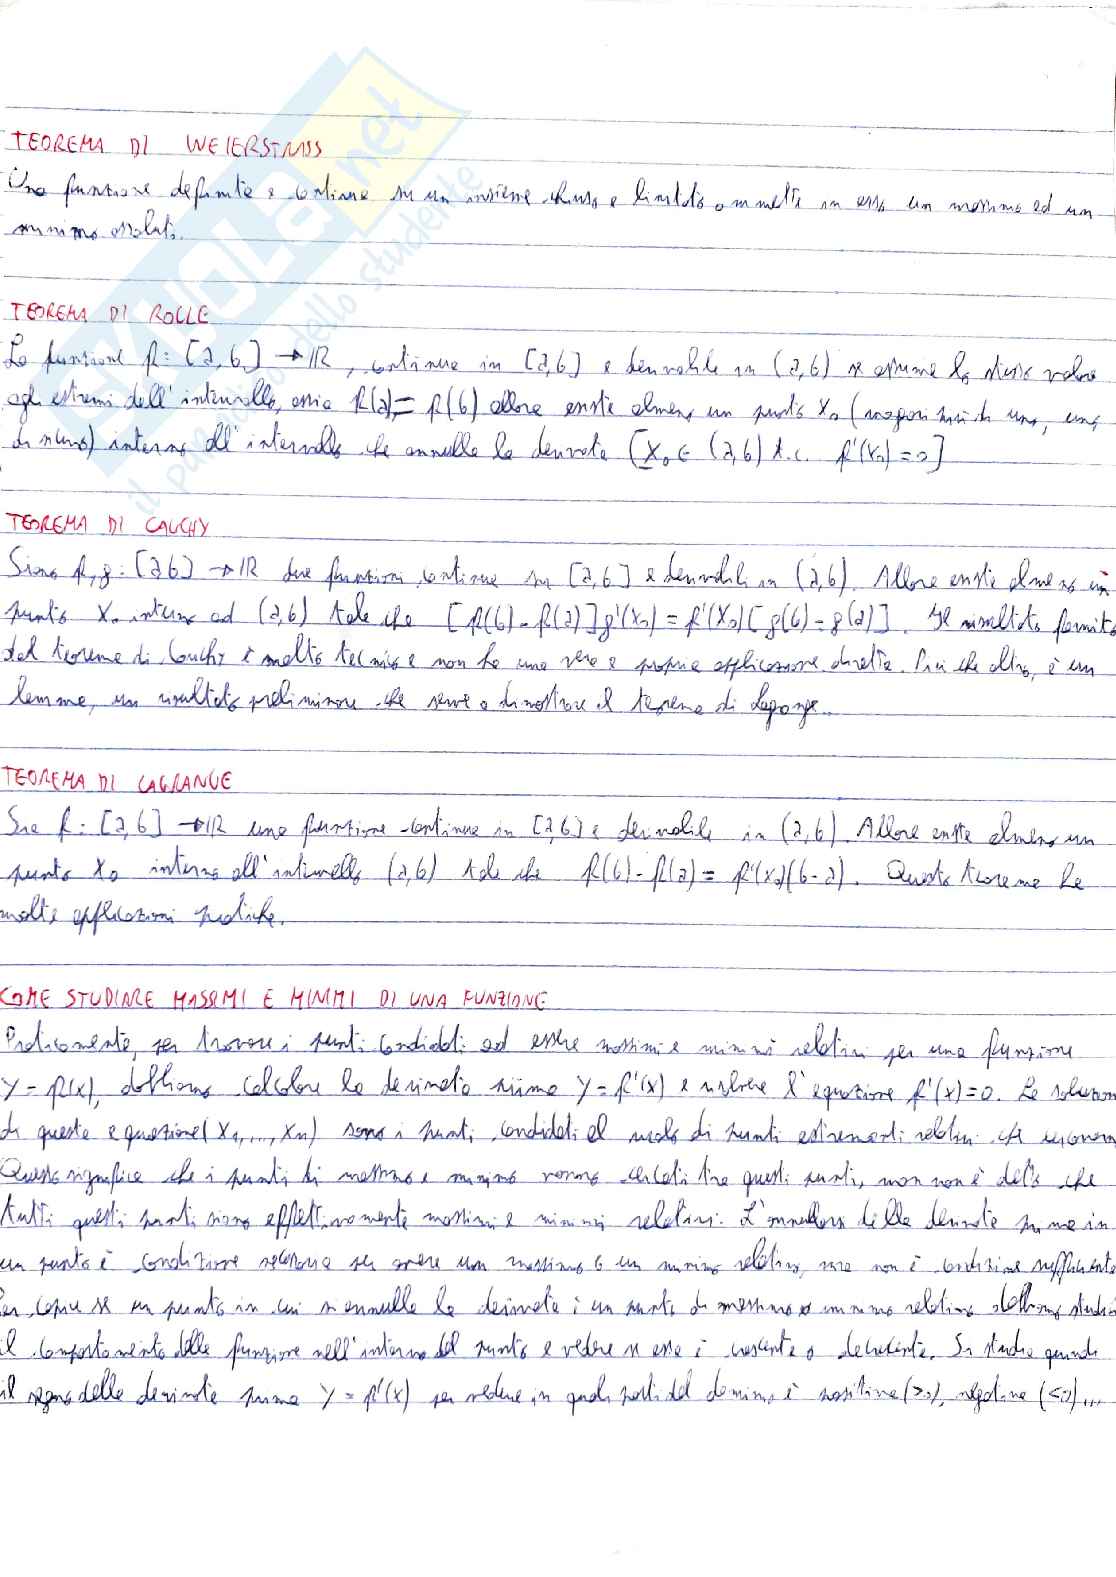 TEOREMA DI WEIERSTRASS
Una funzione definita e continua su un insieme chiuso e limitato ammette in esso un massimo ed un
minimo assoluto.
TEOREMA DI ROLLE
La funzione f: [a,b] → IR, continua in [a,b] e derivabile in (a,b) se assume lo stesso valore
agli estremi dell'intervallo, ossia f(a)= f(b) allora esiste almeno un punto x₀ (magari più di uno, uno
di sicuro) interno all'intervallo che annulla la derivata [x₀ ∈ (a,b) t.c. f'(x₀)=0]
TEOREMA DI CAUCHY
Siano f,g: [a,b] → IR due funzioni continue su [a,b] e derivabili in (a,b). Allora esiste almeno un
punto x₀ interno ad (a,b) tale che [f(b)-f(a)]g'(x₀)=f'(x₀)[g(b)-g(a)]. Il risultato fornito
dal teorema di Cauchy è molto tecnico e non ha una vera e propria applicazione diretta. Più che altro, è un
lemma, un risultato preliminare che serve a dimostrare il teorema di Lagrange.
TEOREMA DI LAGRANGE
Sia f: [a,b] → IR una funzione continua in [a,b] e derivabile in (a,b). Allora esiste almeno un
punto x₀ interno all'intervallo (a,b) tale che f(b)-f(a)= f'(x₀)(b-a). Questo teorema ha
molte applicazioni pratiche.
COME STUDIARE MASSIMI E MINIMI DI UNA FUNZIONE
Praticamente, per trovare i punti candidati ad essere massimi e minimi relativi per una funzione
y=f(x), dobbiamo calcolare la derivata prima y=f'(x) e risolvere l'equazione f'(x)=0. Le soluzioni
di questa equazione (x₁,...,xₙ) sono i punti candidati al ruolo di punti estremanti relativi
Questo significa che i punti di massimo e minimo vanno cercati tra questi punti, ma non è detto che
tutti questi punti siano effettivamente massimi e minimi relativi. L'annullarsi della derivata prima in
un punto è condizione necessaria per avere un massimo o un minimo relativo, ma non è condizione sufficiente
Per capire se un punto in cui si annulla la derivata è un punto di massimo o minimo relativo dobbiamo studiare
il comportamento della funzione nell'intorno del punto e vedere se essa è crescente o decrescente. Si studia quindi
il segno della derivata prima y=f'(x) per vedere in quali parti del dominio è positiva (>0), negativa (<0)...
SKUOLA.net
il paradiso dello studente